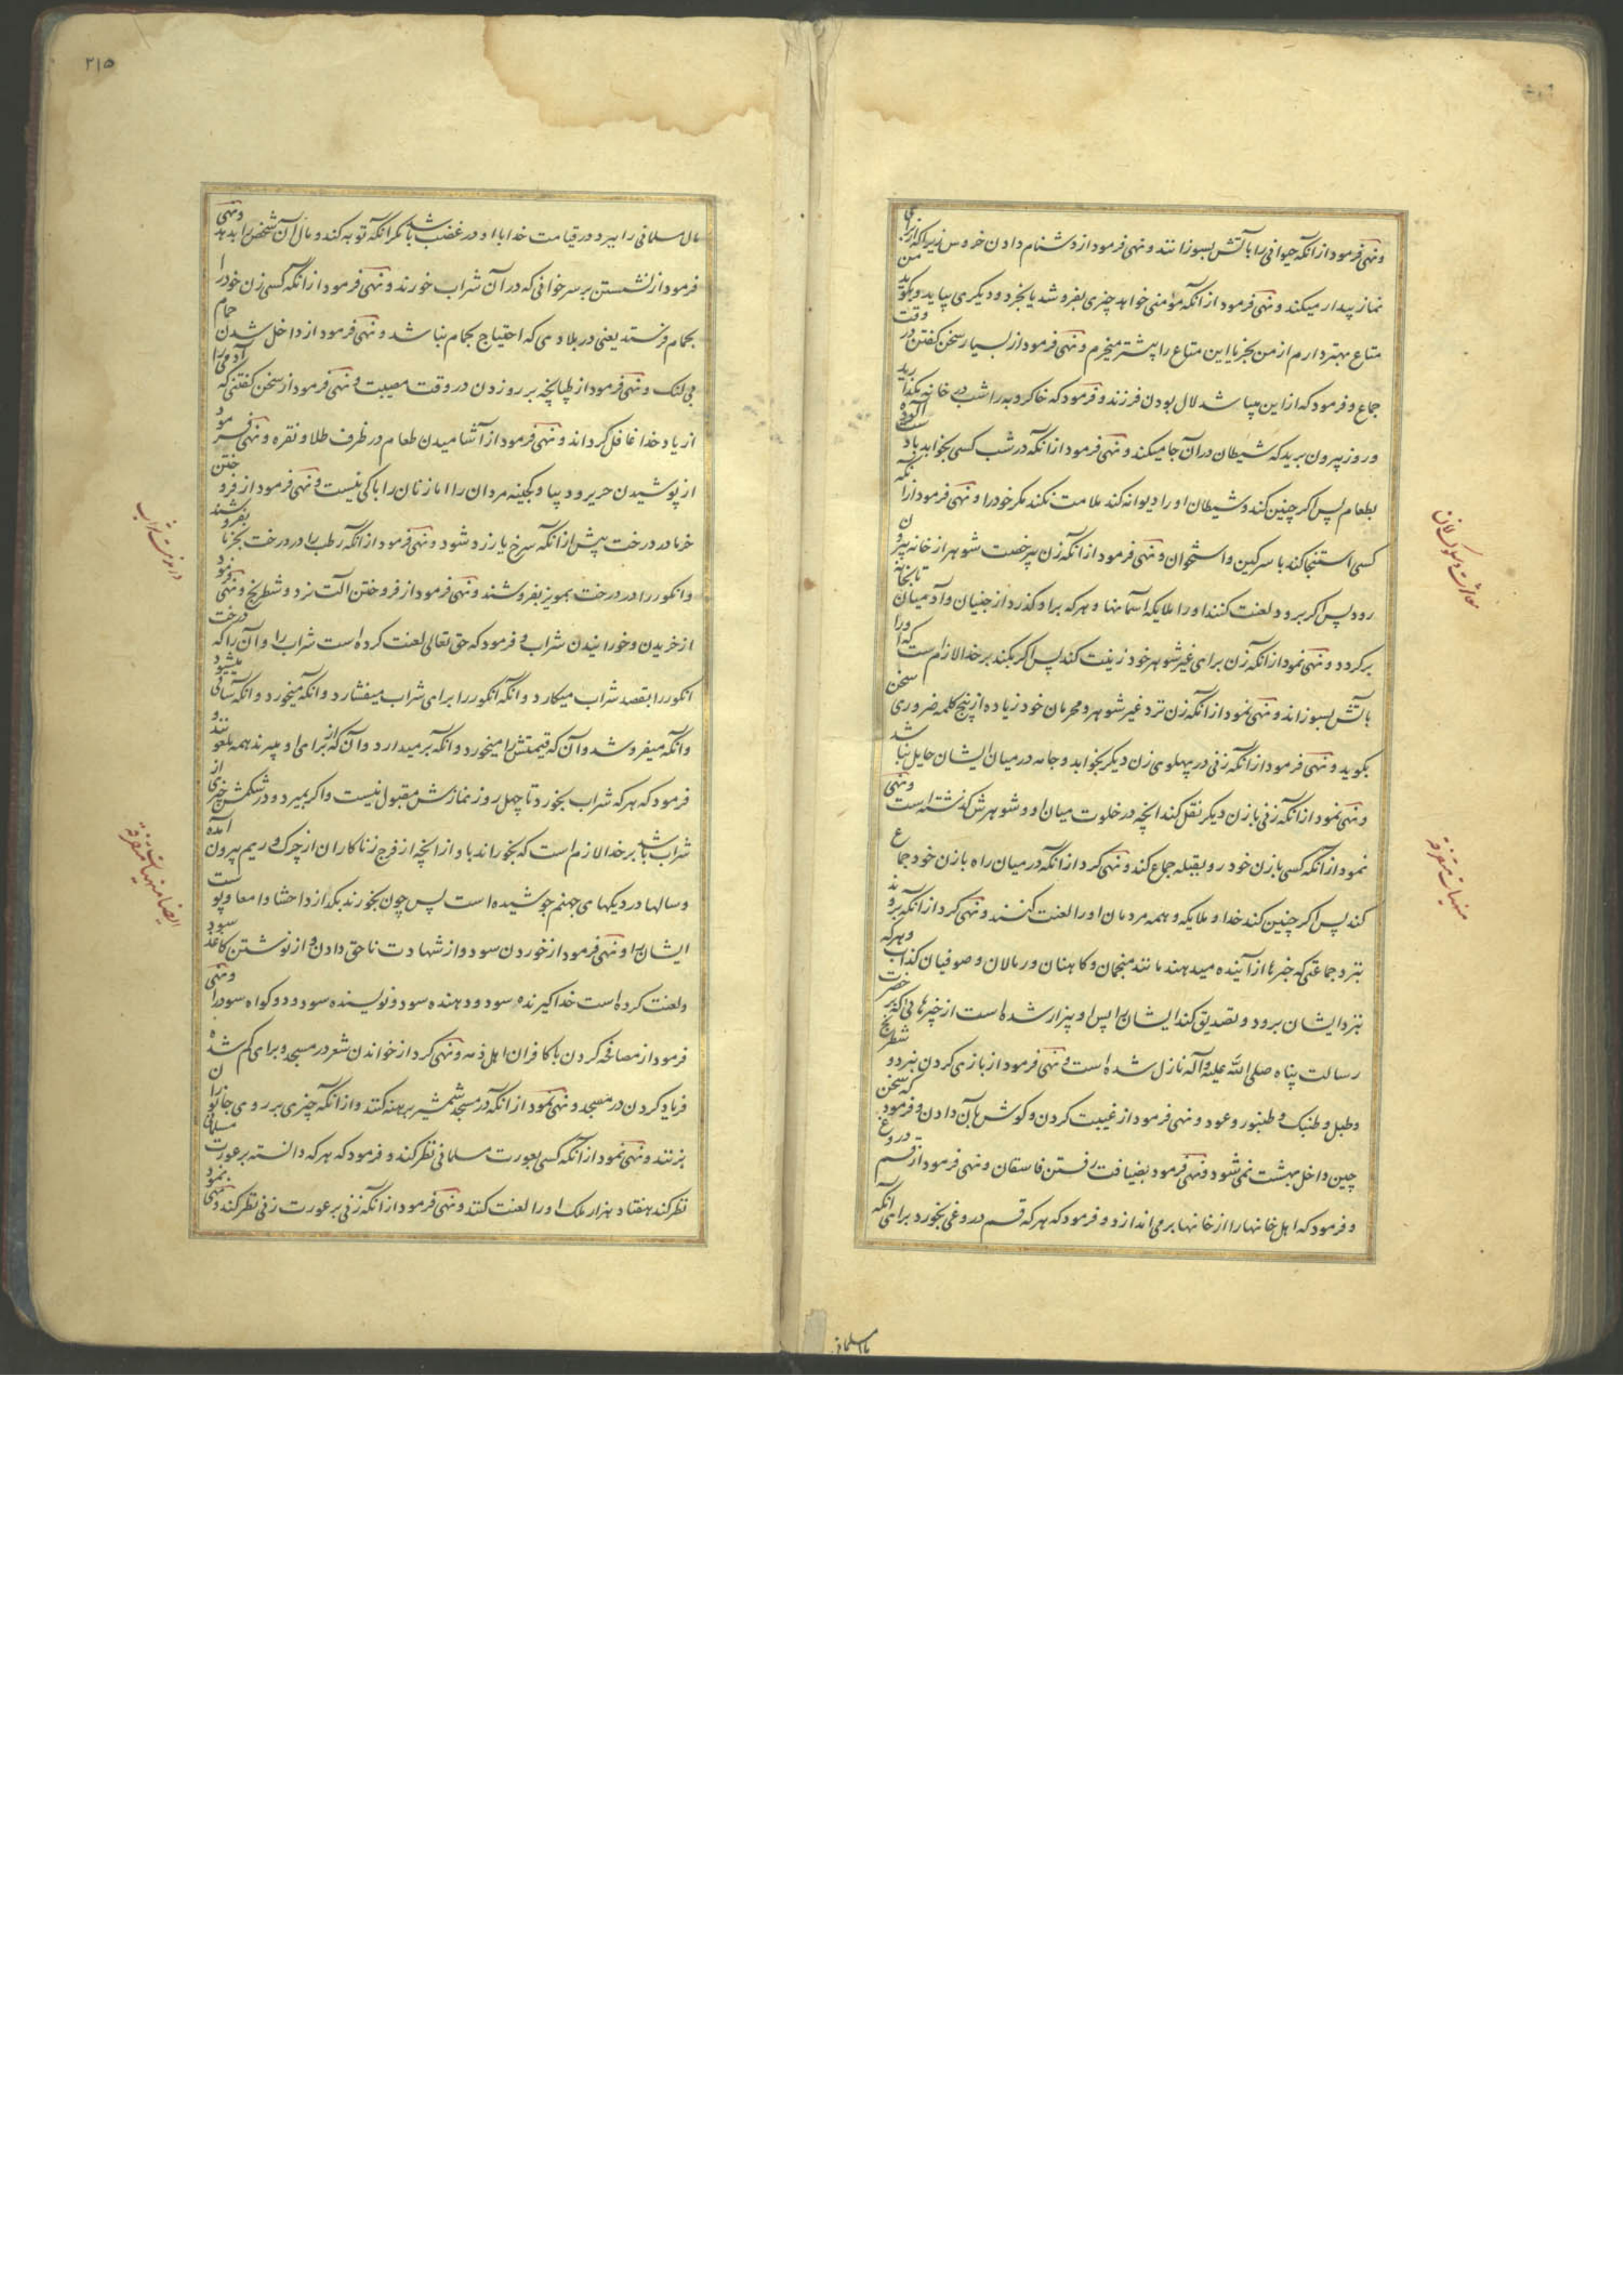 و نهی فرمود از آنکه حیوانی را بآتش بسوزانند و نهی فرمود از دشنام دادن خروس زیرا که از برای
نماز بیدار میکند و نهی فرمود از آنکه مؤمنی خواهد چیزی بفروشد یا بخرد و دیگری بیاید و بگوید من
متاع بهتر دارم از من بخر یا این متاع را پیشتر میخرم و نهی فرمود از بسیار سخن گفتن در وقت
جماع و فرمود که از این میباشد لال بودن فرزند و فرمود که خاکروبه را شب در خانه مگذارید
و روز بیرون برید که شیطان در آن جا میکند و نهی فرمود از آنکه در شب کسی بخوابد با دست آلوده
بطعام پس اگر چنین کند و شیطان او را دیوانه کند ملامت نکند مگر خود را و نهی فرمود از آنکه
کسی استنجا کند با سرگین و استخوان و نهی فرمود از آنکه زن بیرخصت شوهر از خانه بیرون
رود پس اگر برود لعنت کنند او را ملایکه آسمانها و هر که بر او گذرد از جنیان و آدمیان تا بخانه
برگردد و نهی نمود از آنکه زن برای غیر شوهر خود زینت کند پس اگر بکند بر خدا لازم است که او را
بآتش بسوزاند و نهی نمود از آنکه زن نزد غیر شوهر و محرمان خود زیاده از پنج کلمه ضروری سخن
بگوید و نهی فرمود از آنکه زنی در پهلوی زن دیگر بخوابد و جامه در میان ایشان حایل نباشد
و نهی نمود از آنکه زنی با زن دیگر نقل کند آنچه در خلوت میان او و شوهرش گذشته است و نهی
نمود از آنکه کسی با زن خود رو بقبله جماع کند و نهی کرد از آنکه در میان راه با زن خود جماع
کند پس اگر چنین کند خدا و ملایکه و همه مردمان او را لعنت کنند و نهی کرد از آنکه بروند
بنزد جماعتی که خبرها از آینده میدهند مانند منجمان و کاهنان و رمالان و صوفیان کذاب و هر که
بنزد ایشان برود و تصدیق کند ایشان را پس او بیزار شده است از خبرهائی که بر حضرت
رسالت پناه صلی الله علیه و آله نازل شده است و نهی فرمود از بازی کردن بنرد و شطرنج
و طبل و طنبک و طنبور و عود و نهی فرمود از غیبت کردن و گوش بآن دادن و فرمود که سخن
چین داخل بهشت نمی شود و نهی فرمود بضیافت رفتن فاسقان و نهی فرمود از قسم دروغ
و فرمود که اهل خانها را از خانها بر می اندازد و فرمود که هر که قسم دروغی بخورد برای آنکه
معاشرت و سلوک زنان
منهیات متفرقه
مال مسلمانی
۲۱۵
مال مسلمانی را ببرد در قیامت خدا با او در غضب باشد مگر آنکه توبه کند و مال آن شخص را بدهد و نهی
فرمود از نشستن بر سر خوانی که در آن شراب خورند و نهی فرمود از آنکه کسی زن خود را
بحمام فرستد یعنی در بلادی که احتیاج بحمام نباشد و نهی فرمود از داخل شدن حمام
بی لنگ و نهی فرمود از طپانچه بر رو زدن در وقت مصیبت و نهی فرمود از سخن گفتنی که آدمی را
از یاد خدا غافل گرداند و نهی فرمود از آشامیدن طعام در ظرف طلا و نقره و نهی فرمود
از پوشیدن حریر و دیبا و بجهینه مردان را اما زنان را باکی نیست و نهی فرمود از فروختن
خرما در درخت پیش از آنکه سرخ یا زرد شود و نهی فرمود از آنکه رطب را در درخت بخرما بفروشند
و انگور را در درخت بمویز بفروشند و نهی فرمود از فروختن آلت نرد و شطرنج و نهی فرمود
از خریدن و خورانیدن شراب و فرمود که حق تعالی لعنت کرده است شراب را و آن را که درخت
انگور را بقصد شراب میکارد و آنکه انگور را برای شراب میفشارد و آنکه میخورد و آنکه ساقی میشود
و آنکه میفروشد و آن که قیمتش را میخورد و آنکه بر میدارد و آن که از برای او میبرند همه ملعونند
فرمود که هر که شراب بخورد تا چهل روز نمازش مقبول نیست و اگر بمیرد و در شکمش چیزی از
شراب باشد بر خدا لازم است که بخوراند باو از آنچه از فرج زناکاران از چرک و ریم بیرون آمده
و سالها در دیکهای جهنم جوشیده است پس چون بخورند بگدازد احشا و امعا و پوست
ایشان را و نهی فرمود از خوردن سود و از شهادت ناحق دادن و از نوشتن کاغذ سود
و لعنت کرده است خدا گیرنده سود و دهنده سود و نویسنده سود و دو گواه سود را و نهی
فرمود از مصافحه کردن با کافران اهل ذمه و نهی کرد از خواندن شعر در مسجد و برای گم شده
فریاد کردن در مسجد و نهی نمود از آنکه در مسجد شمشیر برهنه کنند و از آنکه چیزی بر روی جانوران
بزنند و نهی نمود از آنکه کسی بعورت مسلمانی نظر کند و فرمود که هر که دانسته بر عورت مسلمانی
نظر کند هفتاد هزار ملک او را لعنت کنند و نهی فرمود از آنکه زنی بر عورت زنی نظر کند و نهی نمود
در مذمت شراب
ایضا منهیات متفرقه